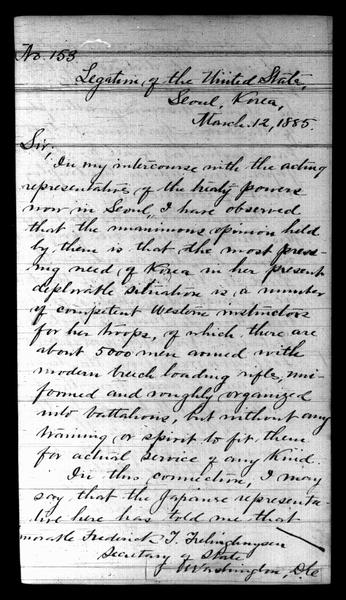 No. 153
Legation of the United States,
Seoul, Korea,
March 12, 1885.
Sir,
In my intercourse with the acting
representatives of the treaty powers
now in Seoul, I have observed
that the unanimous opinion held
by them is that the most press-
ing need of Korea in her present
deplorable situation is a number
of competent Western instructors
for her troops, of which there are
about 5000 men armed with
modern breech loading rifles, uni-
formed and roughly organized
into battalions, but without any
training or spirit to fit them
for actual service of any kind.
In this connection, I may
say that the Japanese representa-
tive here has told me that
orable Frederick T. Frelinghuysen
Secretary of State
Washington, D.C.